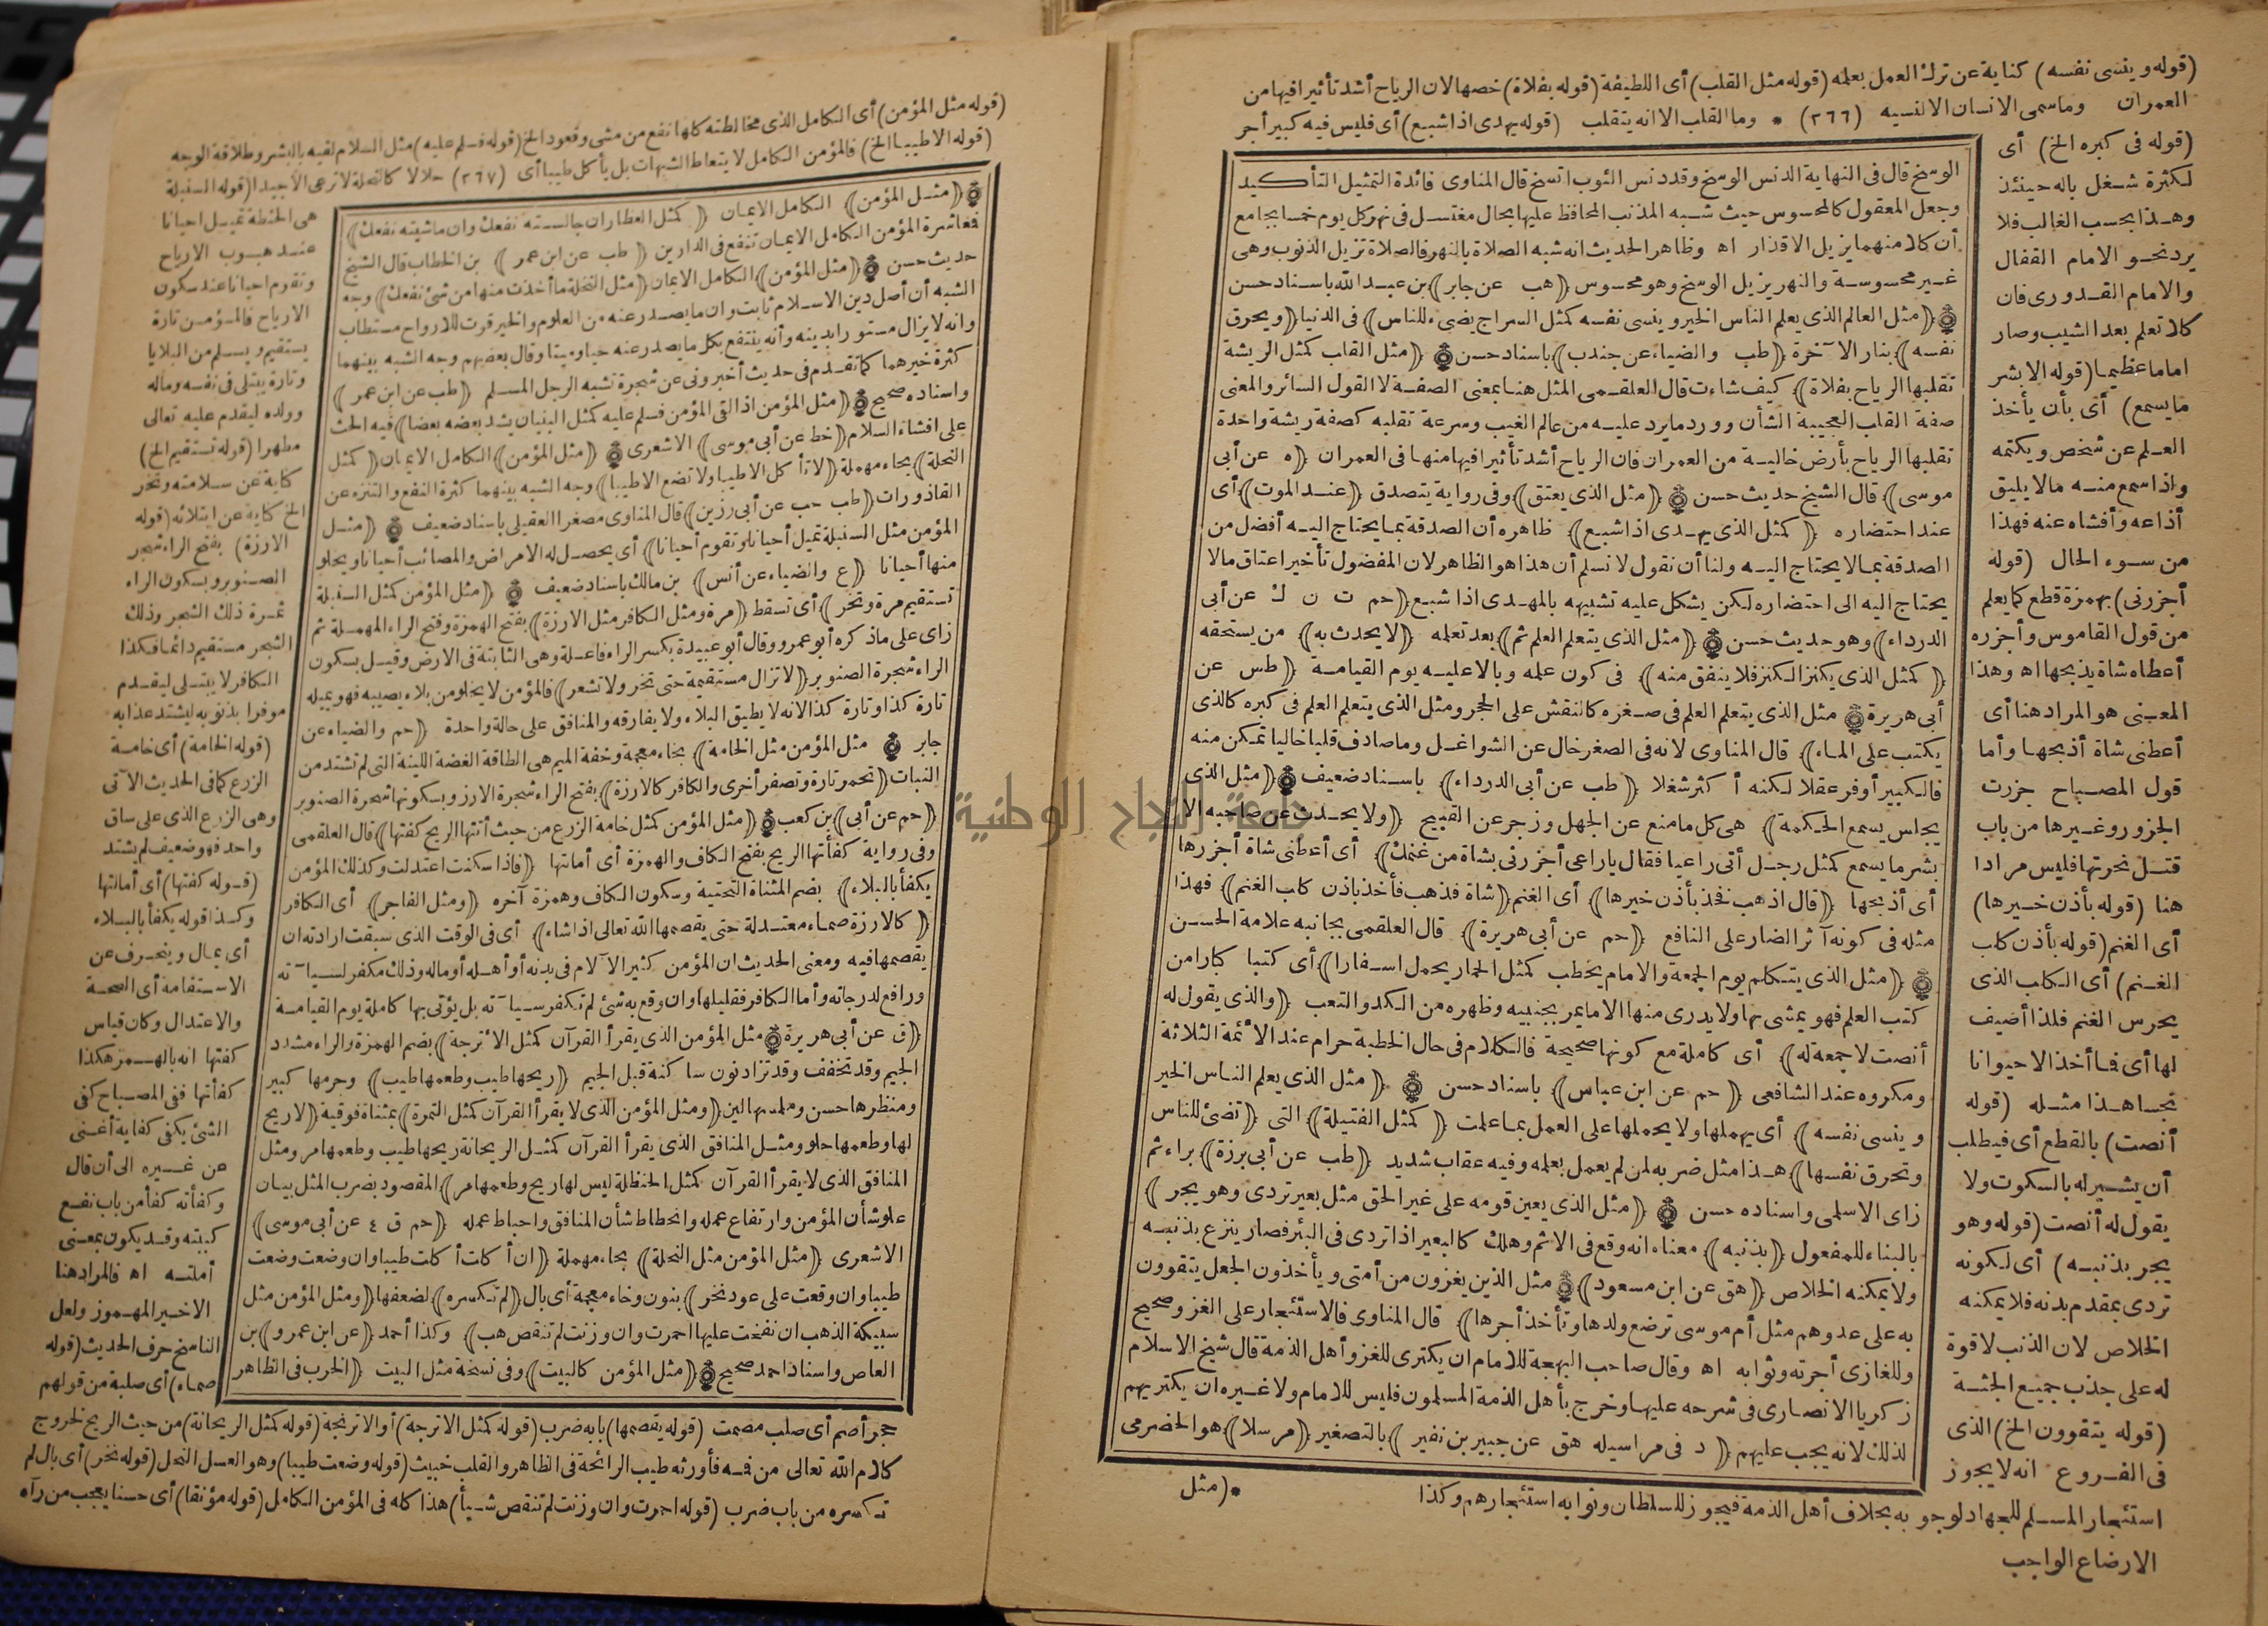 (قوله وينسى نفسه) كناية عن ترك العمل بعلمه (قوله مثل القلب) أى اللطيفة (قوله بفلاة) خصها لان الرياح أشد تأثيرا فيها من
العمران وما سمى الانسان الا لنسيه (٢٦٦) * وما القلب الا انه يتقلب (قوله يهدى اذا شبع) أى فليس فيه كبير أجر
(قوله فى كبره الخ) أى
لكثرة شغل باله حينئذ
وهذا بحسب الغالب فلا
يرد نحو الامام القفال
والامام القدورى فان
كلا تعلم بعد الشيب وصار
اماما عظيما (قوله الا بشر
ما يسمع) أى بأن يأخذ
العلم عن شخص ويكتمه
واذا سمع منه ما لا يليق
أذاعه وأفشاه عنه فهذا
من سوء الحال (قوله
أجزرنى) بهمزة قطع كما يعلم
من قول القاموس وأجزره
أعطاه شاة يذبحها اه وهذا
المعنى هو المراد هنا أى
أعطنى شاة أذبحها وأما
قول المصباح جزرت
الجزور وغيرها من باب
قتل نحرتها فليس مرادا
هنا (قوله بأذن خيرها)
أى الغنم (قوله بأذن كلب
الغنم) أى الكلب الذى
يحرس الغنم فلذا أضيف
لها أى فما أخذ الا حيوانا
نجسا هذا مثله (قوله
أنصت) بالقطع أى فيطلب
أن يشير له بالسكوت ولا
يقول له أنصت (قوله وهو
يجر بذنبه) أى لكونه
تردى بمقدم بدنه فلا يمكنه
الخلاص لان الذنب لا قوة
له على جذب جميع الجثة
(قوله يتقوون الخ) الذى
فى الفروع انه لا يجوز
استئجار المسلم للجهاد لوجوبه بخلاف أهل الذمة فيجوز للسلطان ونوابه استئجارهم وكذا
الارضاع الواجب
الوسخ قال فى النهاية الدنس الوسخ وقد دنس الثوب اتسخ قال المناوى فائدة التمثيل التأكيد
وجعل المعقول كالمحسوس حيث شبه المذنب المحافظ عليها بحال مغتسل فى نهر كل يوم خمسا بجامع
أن كلا منهما يزيل الاقذار اه وظاهر الحديث انه شبه الصلاة بالنهر فالصلاة تزيل الذنوب وهى
غير محسوسة والنهر يزيل الوسخ وهو محسوس ﴿هب عن جابر﴾ بن عبد الله باسناد حسن
﴿مثل العالم الذى يعلم الناس الخير وينسى نفسه كمثل السراج يضىء للناس﴾ فى الدنيا ﴿ويحرق
نفسه﴾ بنار الآخرة ﴿طب والضياء عن جندب﴾ باسناد حسن ﴿مثل القلب كمثل الريشة
تقلبها الرياح بفلاة﴾ كيف شاءت قال العلقمى المثل هنا بمعنى الصفة لا القول السائر والمعنى
صفة القلب العجيبة الشأن وورد ما يرد عليه من عالم الغيب وسرعة تقلبه كصفة ريشة واحدة
تقلبها الرياح بأرض خالية من العمران فان الرياح أشد تأثيرا فيها منها فى العمران ﴿ه عن أبى
موسى﴾ قال الشيخ حديث حسن ﴿مثل الذى يعتق﴾ وفى رواية يتصدق ﴿عند الموت﴾ أى
عند احتضاره ﴿كمثل الذى يهدى اذا شبع﴾ ظاهره أن الصدقة بما يحتاج اليه أفضل من
الصدقة بما لا يحتاج اليه ولنا أن نقول لا نسلم أن هذا هو الظاهر لان المفضول تأخير اعتاق ما لا
يحتاج اليه الى احتضاره لكن يشكل عليه تشبيهه بالمهدى اذا شبع ﴿حم ت ن ك عن أبى
الدرداء﴾ وهو حديث حسن ﴿مثل الذى يتعلم العلم ثم﴾ بعد تعلمه ﴿لا يحدث به﴾ من يستحقه
﴿كمثل الذى يكنز الكنز فلا ينفق منه﴾ فى كون علمه وبالا عليه يوم القيامة ﴿طس عن
أبى هريرة﴾ مثل الذى يتعلم العلم فى صغره كالنقش على الحجر ومثل الذى يتعلم العلم فى كبره كالذى
يكتب على الماء﴾ قال المناوى لانه فى الصغر خال عن الشواغل وما صادف قلبا خاليا تمكن منه
فالكبير أوفر عقلا لكنه أكثر شغلا ﴿طب عن أبى الدرداء﴾ باسناد ضعيف ﴿مثل الذى
يجلس يسمع الحكمة﴾ هى كل ما منع عن الجهل وزجر عن القبيح ﴿ولا يحدث عن صاحبه الا
بشر ما يسمع كمثل رجل أتى راعيا فقال يا راعى أجزرنى بشاة من غنمك﴾ أى أعطنى شاة أجزرها
أى أذبحها ﴿قال اذهب فخذ بأذن خيرها﴾ أى الغنم ﴿شاة فذهب فأخذ باذن كلب الغنم﴾ فهذا
مثله فى كونه آثر الضار على النافع ﴿حم عن أبى هريرة﴾ قال العلقمى بجانبه علامة الحسن
﴿مثل الذى يتكلم يوم الجمعة والامام يخطب كمثل الحمار يحمل اسفارا﴾ أى كتبا كبارا من
كتب العلم فهو يمشى بها ولا يدرى منها الا ما يمر بجنبيه وظهره من الكد والتعب ﴿والذى يقول له
أنصت لا جمعة له﴾ أى كاملة مع كونها صحيحة فالكلام فى حال الخطبة حرام عند الأئمة الثلاثة
ومكروه عند الشافعى ﴿حم عن ابن عباس﴾ باسناد حسن ﴿مثل الذى يعلم الناس الخير
وينسى نفسه﴾ أى يهملها ولا يحملها على العمل بما علمت ﴿كمثل الفتيلة﴾ التى ﴿تضئ للناس
وتحرق نفسها﴾ هذا مثل ضربه لمن لم يعمل بعلمه وفيه عقاب شديد ﴿طب عن أبى برزة﴾ براء ثم
زاى الاسلمى واسناده حسن ﴿مثل الذى يعين قومه على غير الحق مثل بعير تردى وهو يجر﴾
بالبناء للمفعول ﴿بذنبه﴾ معناه انه وقع فى الاثم وهلك كالبعير اذا تردى فى البئر فصار ينزع بذنبه
ولا يمكنه الخلاص ﴿هق عن ابن مسعود﴾ مثل الذين يغزون من أمتى ويأخذون الجعل يتقوون
به على عدوهم مثل أم موسى ترضع ولدها وتأخذ أجرها﴾ قال المناوى فالاستئجار على الغزو صحيح
وللغازى أجرته وثوابه اه وقال صاحب البهجة للامام ان يكترى للغزو أهل الذمة قال شيخ الاسلام
زكريا الانصارى فى شرحه عليها وخرج بأهل الذمة المسلمون فليس للامام ولا غيره ان يكتريهم
لذلك لانه يجب عليهم ﴿د فى مراسيله هق عن جبير بن نفير﴾ بالتصغير ﴿مرسلا﴾ هو الحضرمى
*(مثل
(قوله مثل المؤمن) أى الكامل الذى مخالطته كلها نفع من مشى وقعود الخ (قوله فسلم عليه) مثل السلام لقيه بالبشر وطلاقة الوجه
(قوله الا طيبا الخ) فالمؤمن الكامل لا يتعاطى الشبهات بل يأكل طيبا أى (٢٦٧) حلالا كالنحلة لا ترعى الا جيدا (قوله السنبلة
هى الحنطة تميل احيانا
عند هبوب الارياح
وتقوم احيانا عند سكون
الارياح فالمؤمن تارة
يستقيم ويسلم من البلايا
وتارة يبتلى فى نفسه وماله
وولده ليقدم عليه تعالى
مطهرا (قوله تستقيم الخ)
كناية عن سلامته وتخر
الخ كناية عن ابتلائه (قوله
الارزة) بفتح الراء شجر
الصنوبر وبسكون الراء
ثمرة ذلك الشجر وذلك
الشجر مستقيم دائما فكذا
الكافر لا يبتلى ليقدم
موفرا بذنوبه ليشتد عذابه
(قوله الخامة) أى خامة
الزرع كما فى الحديث الآتى
وهى الزرع الذى على ساق
واحد فهو ضعيف لم يشتد
(قوله كفتها) أى أمالتها
وكذا قوله يكفأ بالبلاء
أى يمال وينحرف عن
الاستقامة أى الصحة
والاعتدال وكان قياس
كفتها انه بالهمز هكذا
كفأتها ففى المصباح كفى
الشئ يكفى كفاية أغنى
عن غيره الى أن قال
وكفأته كفأ من باب نفع
كببته وقد يكون بمعنى
أملته اه فالمراد هنا
الاخير المهموز ولعل
الناسخ حرف الحديث (قوله
صماء) أى صلبة من قولهم
حجر أصم أى صلب مصمت (قوله يقصمها) بابه ضرب (قوله كمثل الاترجة) أو الاترنجة (قوله كمثل الريحانة) من حيث الريح لخروج
كلام الله تعالى من فمه فأورثه طيب الرائحة فى الظاهر والقلب خبيث (قوله وضعت طيبا) وهو العسل النحل (قوله نخر) أى بال لم
تكسره من باب ضرب (قوله احمرت وان وزنت لم تنقص شيأ) هذا كله فى المؤمن الكامل (قوله مؤنقا) أى حسنا يعجب من رآه
﴿مثل المؤمن﴾ الكامل الايمان ﴿كمثل العطار ان جالسته نفعك وان ماشيته نفعك﴾
فمعاشرة المؤمن الكامل الايمان تنفع فى الدارين ﴿طب عن ابن عمر﴾ بن الخطاب قال الشيخ
حديث حسن ﴿مثل المؤمن﴾ الكامل الايمان ﴿مثل النخلة ما أخذت منها من شئ نفعك﴾ وجه
الشبه أن أصل دين الاسلام ثابت وان ما يصدر عنه من العلوم والخير قوت للارواح مستطاب
وانه لا يزال مستورا بدينه وأنه ينتفع بكل ما يصدر عنه حيا وميتا وقال بعضهم وجه الشبه بينهما
كثرة خيرهما كما تقدم فى حديث أخبرونى عن شجرة تشبه الرجل المسلم ﴿طب عن ابن عمر﴾
واسناده صحيح ﴿مثل المؤمن اذا لقى المؤمن فسلم عليه كمثل البنيان يشد بعضه بعضا﴾ فيه الحث
على افشاء السلام ﴿خط عن أبى موسى﴾ الاشعرى ﴿مثل المؤمن﴾ الكامل الايمان ﴿كمثل
النحلة﴾ بحاء مهملة ﴿لا تأكل الا طيبا ولا تضع الا طيبا﴾ وجه الشبه بينهما كثرة النفع والتنزه عن
القاذورات ﴿طب حب عن أبى رزين﴾ قال المناوى مصغرا العقيلى باسناد ضعيف ﴿مثل
المؤمن مثل السنبلة تميل أحيانا وتقوم أحيانا﴾ أى يحصل له الامراض والمصائب أحيانا ويخلو
منها أحيانا ﴿ع والضياء عن أنس﴾ بن مالك باسناد ضعيف ﴿مثل المؤمن كمثل السنبلة
تستقيم مرة وتخر﴾ أى تسقط ﴿مرة ومثل الكافر مثل الارزة﴾ بفتح الهمزة وفتح الراء المهملة ثم
زاى على ما ذكره أبو عمرو وقال أبو عبيدة بكسر الراء فاعلة وهى الثابتة فى الارض وقيل بسكون
الراء شجرة الصنوبر ﴿لا تزال مستقيمة حتى تخر ولا تشعر﴾ فالمؤمن لا يخلو من بلاء يصيبه فهو يميله
تارة كذا وتارة كذا لانه لا يطيق البلاء ولا يفارقه والمنافق على حالة واحدة ﴿حم والضياء عن
جابر﴾ ﴿مثل المؤمن مثل الخامة﴾ بخاء معجمة وخفة الميم هى الطاقة الغضة اللينة التى لم تشتد من
النبات ﴿تحمر تارة وتصفر أخرى والكافر كالارزة﴾ بفتح الراء شجرة الارز وبسكونها شجرة الصنوبر
﴿حم عن أبى﴾ بن كعب ﴿مثل المؤمن كمثل خامة الزرع من حيث أتتها الريح كفتها﴾ قال العلقمى
وفى رواية كفأتها الريح بفتح الكاف والهمزة أى أمالتها ﴿فاذا سكنت اعتدلت وكذلك المؤمن
يكفأ بالبلاء﴾ بضم المثناة التحتية وسكون الكاف وهمزة آخره ﴿ومثل الفاجر﴾ أى الكافر
﴿كالارزة صماء معتدلة حتى يقصمها الله تعالى اذا شاء﴾ أى فى الوقت الذى سبقت ارادته ان
يقصمها فيه ومعنى الحديث ان المؤمن كثير الآلام فى بدنه أو أهله أو ماله وذلك مكفر لسيآته
ورافع لدرجاته وأما الكافر فقليلها وان وقع به شئ لم تكفر سيآته بل يؤتى بها كاملة يوم القيامة
﴿ق عن أبى هريرة﴾ مثل المؤمن الذى يقرأ القرآن كمثل الأترجة﴾ بضم الهمزة والراء مشدد
الجيم وقد تخفف وقد تزاد نون ساكنة قبل الجيم ﴿ريحها طيب وطعمها طيب﴾ وجرمها كبير
ومنظرها حسن وملمسها لين ﴿ومثل المؤمن الذى لا يقرأ القرآن كمثل التمرة﴾ بمثناة فوقية ﴿لا ريح
لها وطعمها حلو ومثل المنافق الذى يقرأ القرآن كمثل الريحانة ريحها طيب وطعمها مر ومثل
المنافق الذى لا يقرأ القرآن كمثل الحنظلة ليس لها ريح وطعمها مر﴾ المقصود بضرب المثل بيان
علو شأن المؤمن وارتفاع عمله وانحطاط شأن المنافق واحباط عمله ﴿حم ق ٤ عن أبى موسى﴾
الاشعرى ﴿مثل المؤمن مثل النحلة﴾ بحاء مهملة ﴿ان أكلت أكلت طيبا وان وضعت وضعت
طيبا وان وقعت على عود نخر﴾ بنون وخاء معجمة أى بال ﴿لم تكسره﴾ لضعفها ﴿ومثل المؤمن مثل
سبيكة الذهب ان نفخت عليها احمرت وان وزنت لم تنقص هب﴾ وكذا أحمد ﴿عن ابن عمرو﴾ بن
العاص واسناد احمد صحيح ﴿مثل المؤمن كالبيت﴾ وفى نسخة مثل البيت ﴿الخرب فى الظاهر
جامعة النجاح الوطنية